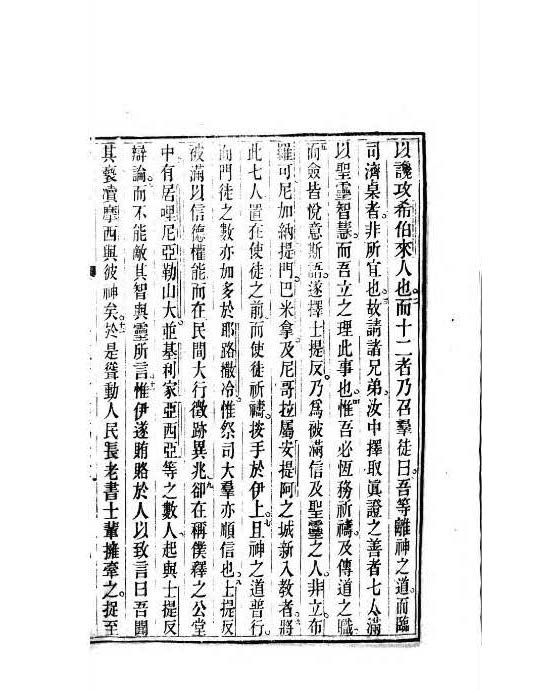 以讒攻希伯來人也而十二者乃召羣徒曰吾等離神之道而臨
司濟桌者非所宜也故請諸兄弟汝中擇取眞證之善者七人滿
以聖靈智慧而吾立之理此事也惟吾必恆務祈禱及傳道之職
而僉皆悅意斯語遂擇士提反乃爲被滿信及聖靈之人非立布
羅可尼加納提門巴米拿及尼哥拉屬安提阿之城新入教者將
此七人置在使徒之前而使徒祈禱按手於伊上且神之道普行
而門徒之數亦加多於耶路撒冷惟祭司大羣亦順信也士提反
被滿以信德權能而在民間大行徵跡異兆卻在稱僕釋之公堂
中有居哩尼亞勒山大並基利家亞西亞等之數人起與士提反
辯論而不能敵其智與靈所言惟伊遂賄賂於人以致言曰吾聞
其褻瀆摩西與彼神矣於是聳動人民長老書士輩擁牽之捉至